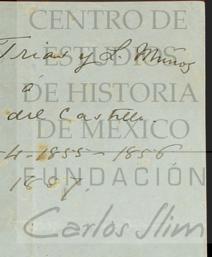 CENTRO DE
ESTUDIOS
Trias y L. Muñoz
DE HISTORIA
á
del Castillo.
DE MÉXICO
-4-1855-1856
1857.
FUNDACIÓN
Carlos Slim